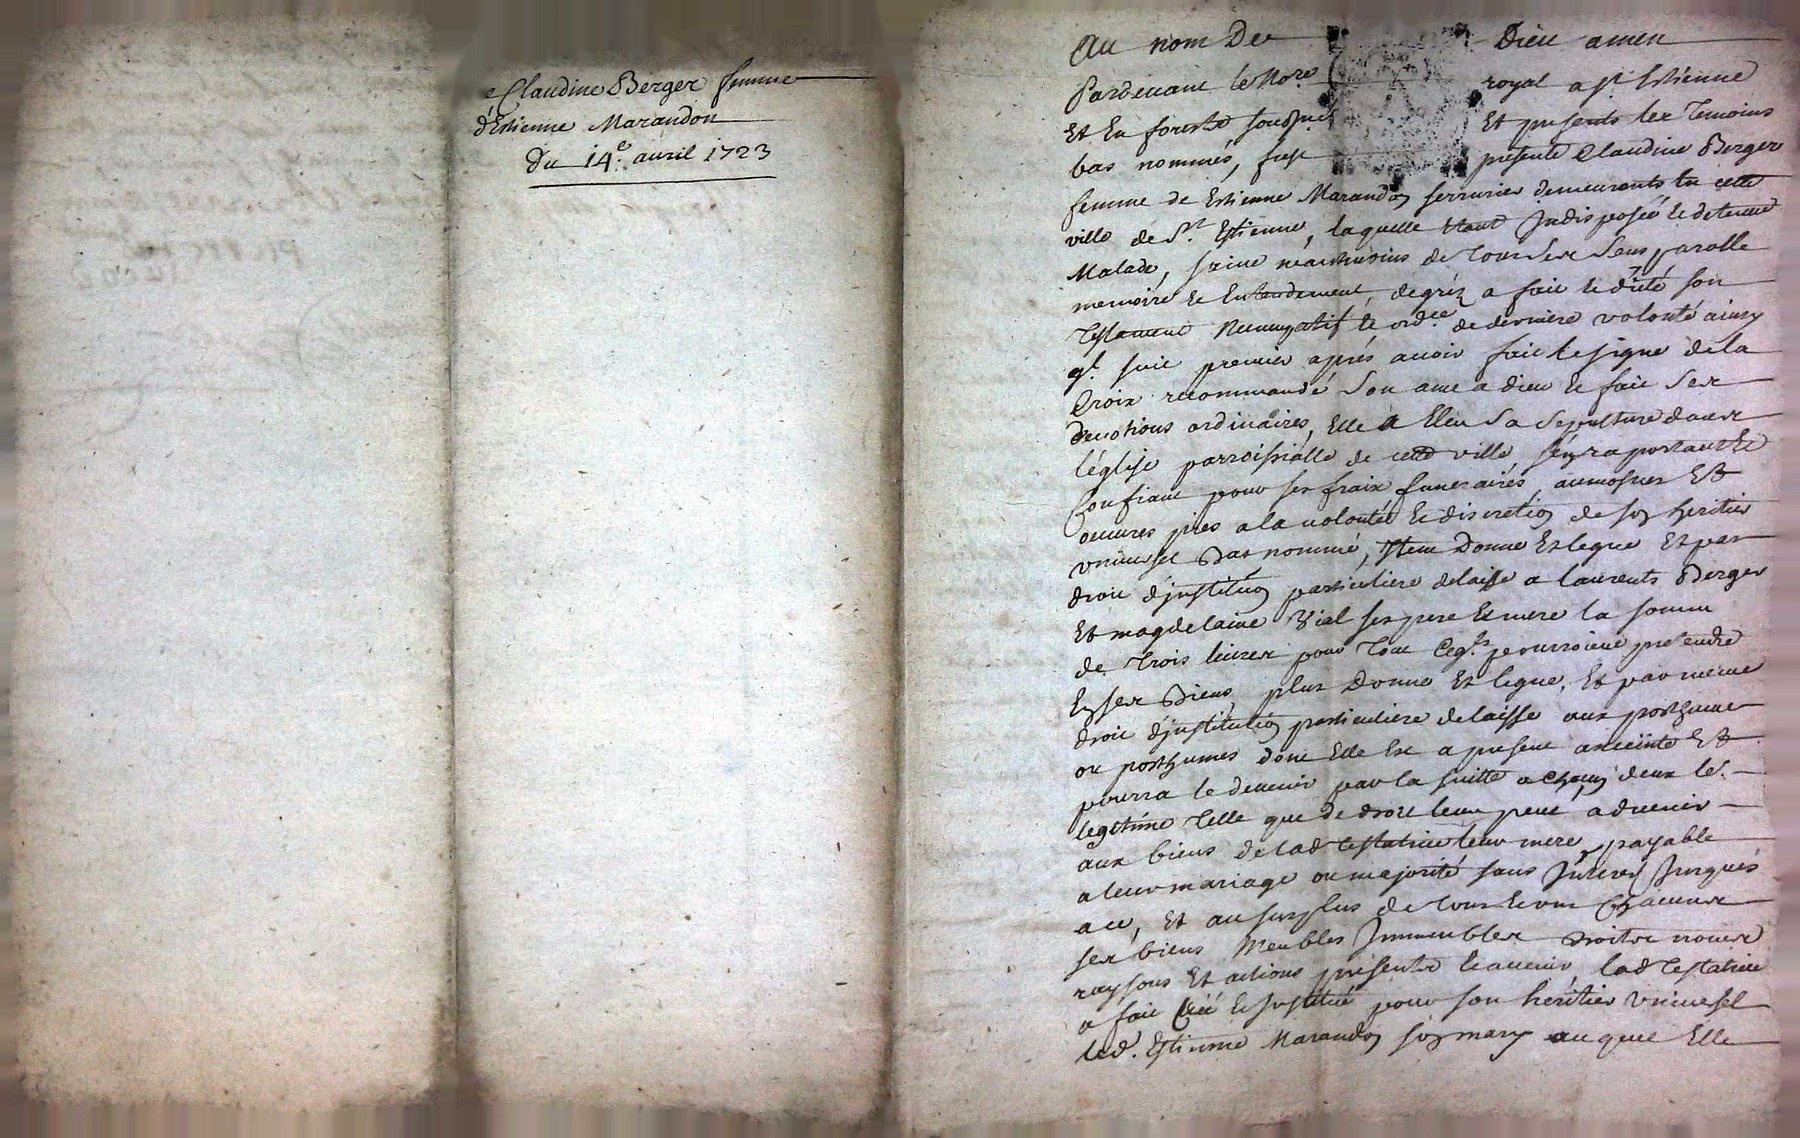 Claudine Berger femme
d'Estienne Marandon
Du 14e. avril 1723
Au nom De Dieu amen
Pardevant le Nore royal a St Estienne
Et En forest soubsné Et presents les Temoins
bas nommés, fust presente Claudine Berger
femme de Estienne Marandon serrurier demeurants En cette
ville de St. Estienne, laquelle Etant Indisposée Et detenue
Malade, saine neantmoins de tous ses Sens parolle
memoire Et Entendement, degréz a fait Et dicté son
Testament Nuncupatif Et ordce de derniere volonté ainsy
ql. suit premier aprés avoir fait le signe de la
Croix recommandé Son ame a dieu Et fait Ses
devotions ordinaires, Elle a Eleu Sa Sepulture dans
l'église parroissialle de cette ville s'en raportant Et
Confiant pour ses fraix funeraires, aumosnes Et
oeuvres pies a la volonté Et discretion de son heritier
universel Bas nommé, Item Donne Et legue Et par
droit d'institution particuliere delaisse a laurents Berger
Et magdelaine Vial ses pere Et mere la somme
de Trois livres pour Tout Ceqls pourroient pretendre
En ses Biens, plus Donne Et legue, Et par méme
droit d'institution particuliere delaisse aux posthume
ou posthumes dont Elle Est a present anceinte Et
pourra le devenir par la suitte a chacun deux les.
legitime Telle que de droit leur peut advenir
aux biens de lad testatrice leur mere, payable
a leur mariage ou majorité sans Interes Jusques
a ce, Et au surplus de tous Et uns Chacuns
ses biens Meubles Immeubles Droits noms
raysons Et actions presents Et avenir, lad Testatrice
a fait Créé Et Institué pour son heritier Universel
led. Estienne Marandon son mary auquel Elle